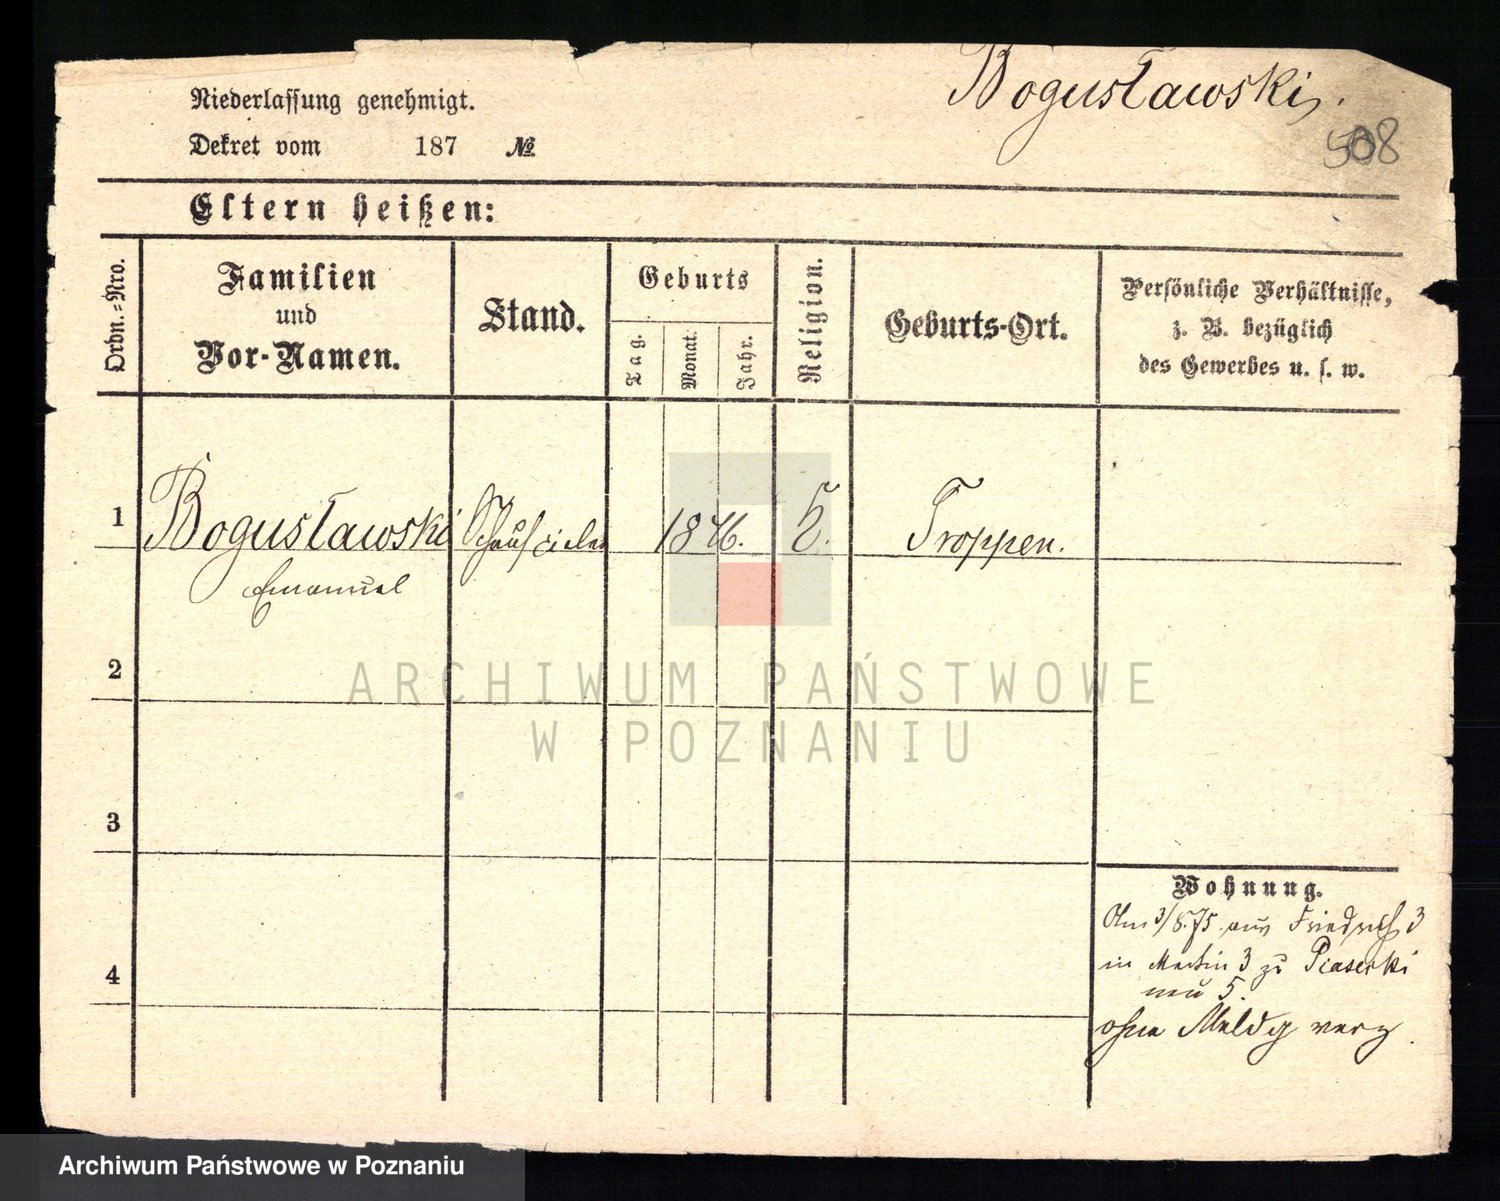 Bogusławski.
508
Niederlassung genehmigt.
Dekret vom 187 №
Eltern heißen:
Ordn.-Nro.
Familien
und
Vor-Namen.
Stand.
Geburts
Tag.
Monat.
Jahr.
Religion.
Geburts-Ort.
Persönliche Verhältnisse,
z. B. bezüglich
des Gewerbes u. s. w.
1 Bogusławski 1846. Troppen.
Emanuel
2
ARCHIWUM PAŃSTWOWE
W POZNANIU
3
Wohnung.
3/8.75. aus Friedrich 3
4
in Martin 3 zu Piaserki
neu 5.
ohne Meldg verz
Archiwum Państwowe w Poznaniu